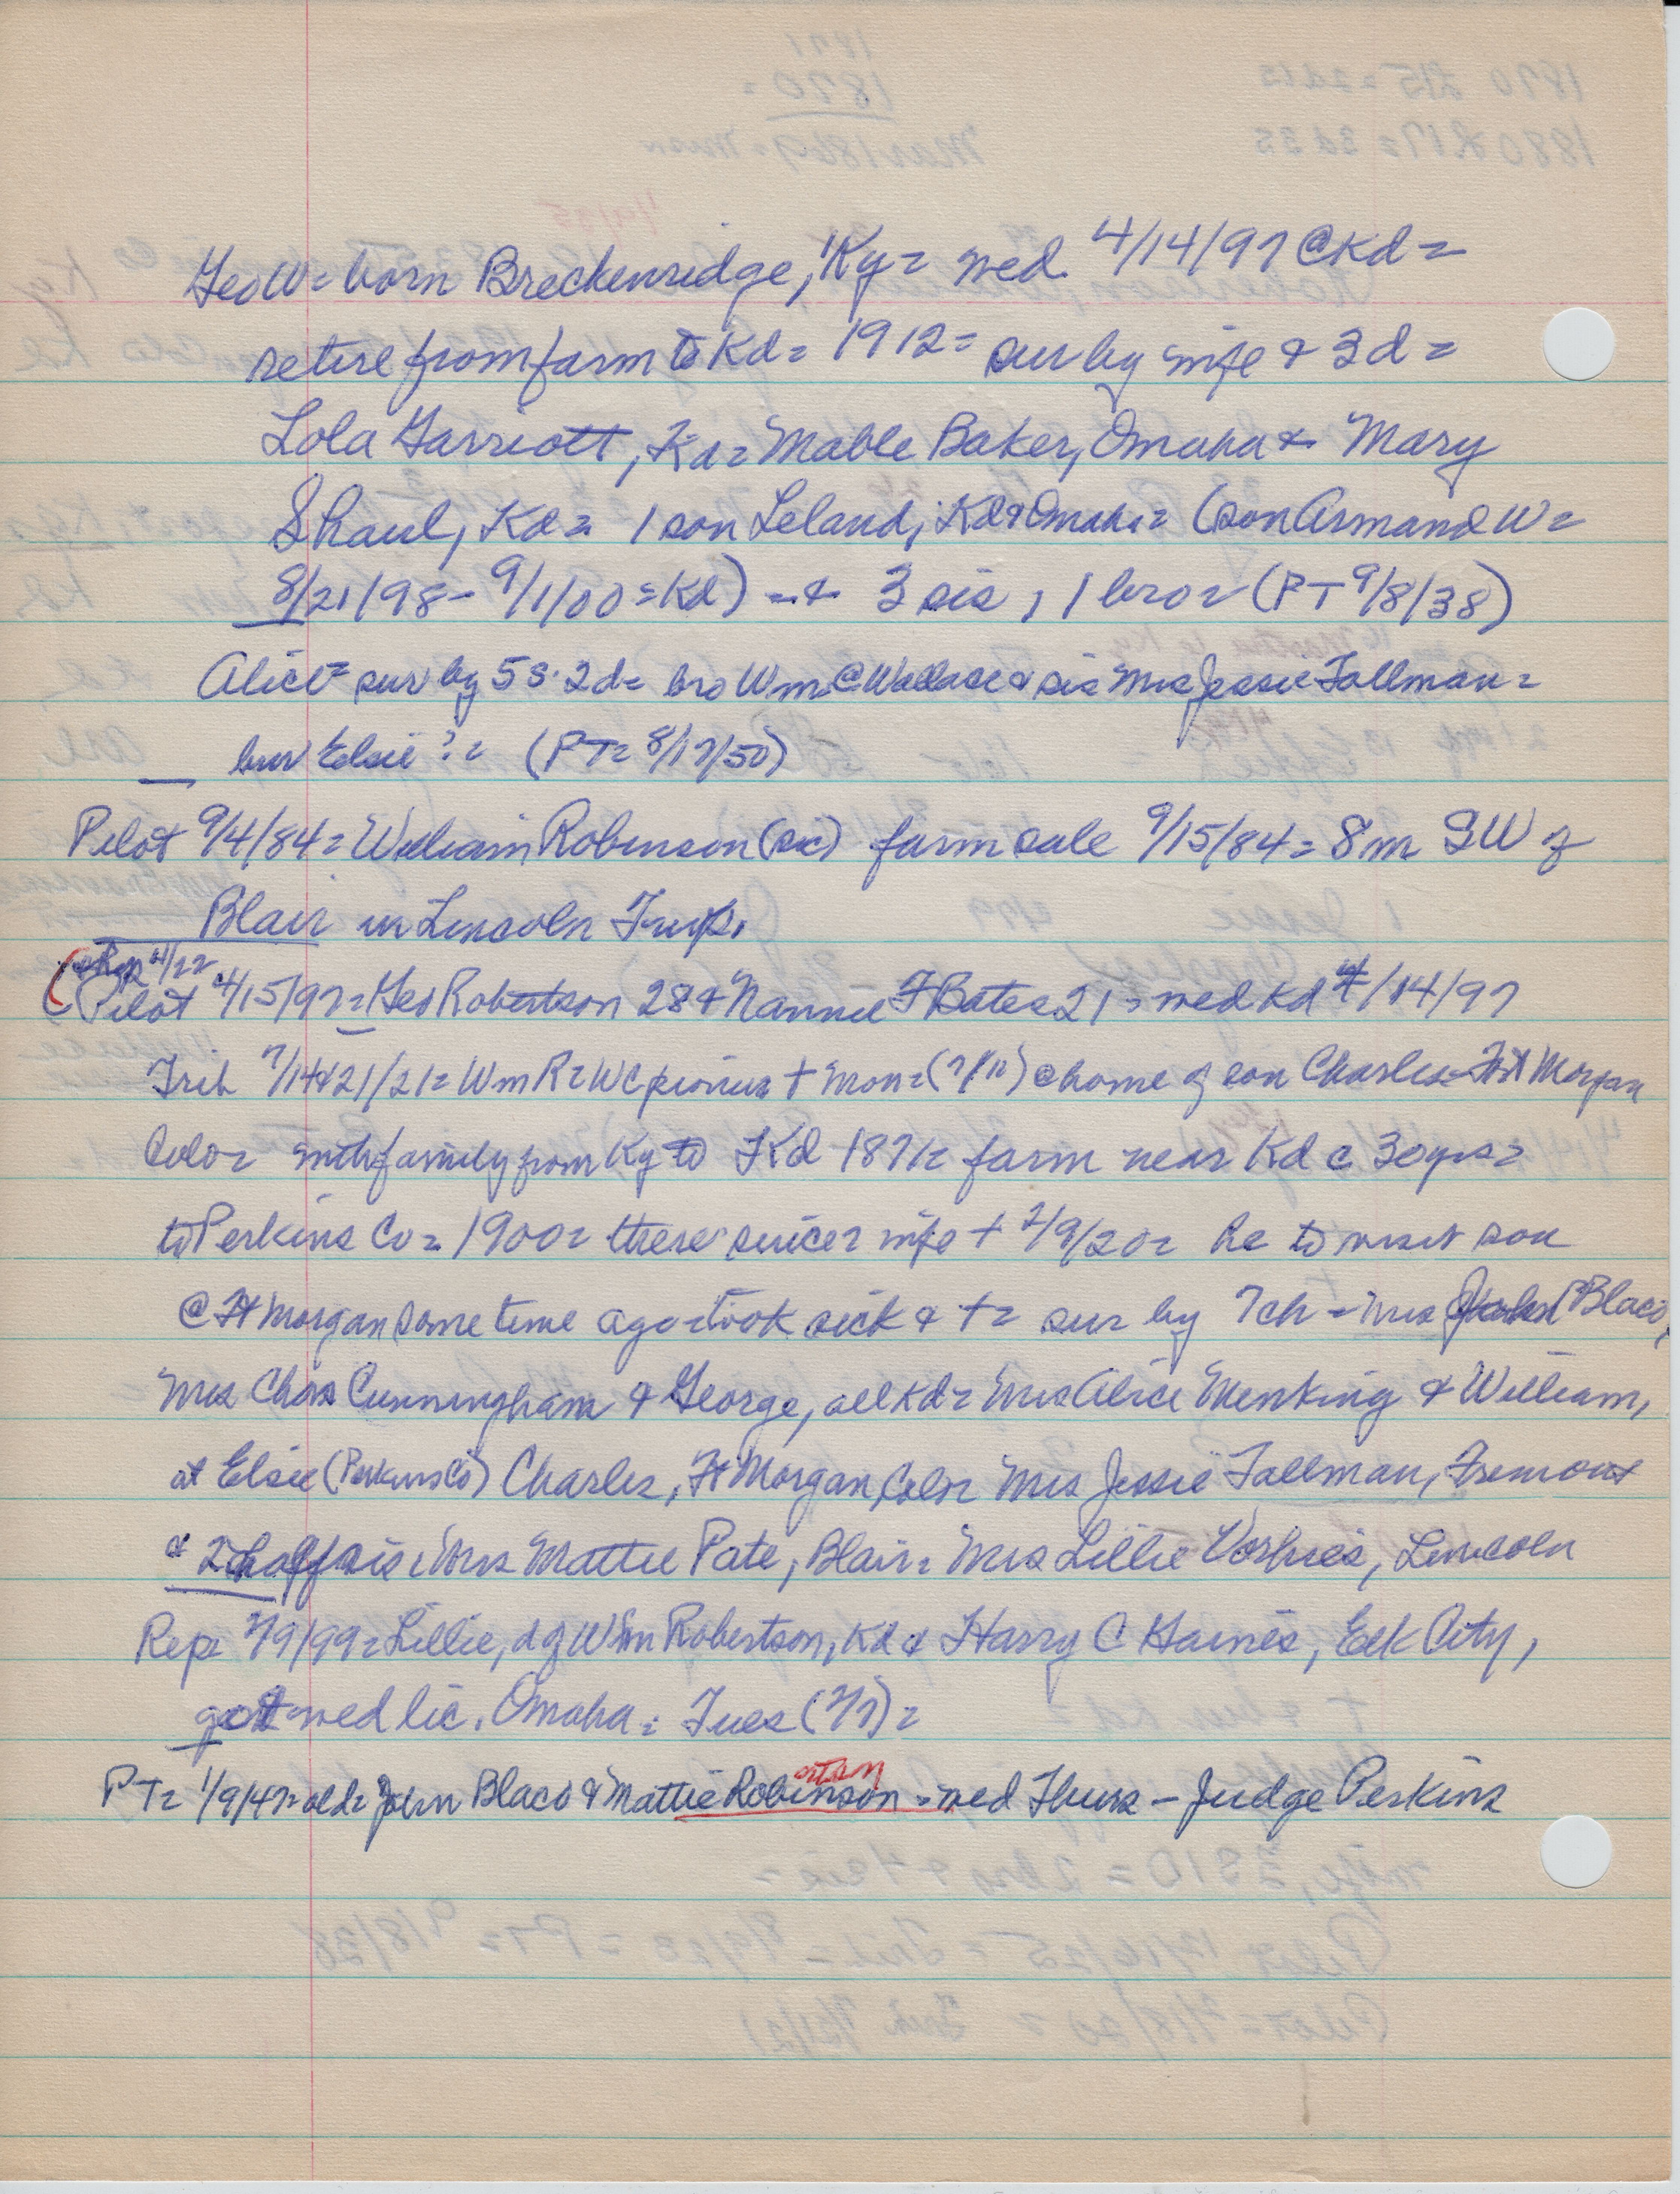 Geo W = born Breckenridge, Ky = wed. 4/14/97 @ Kd =
retire from farm to Kd = 1912 = sur by wife & 3 d =
Lola Garriott, Kd = Mable Baker, Omaha & Mary
Shaul, Kd = 1 son Leland, Kd & Omaha = (son Armand W =
8/21/98 - 9/1/00 = Kd) = & 3 sis, 1 bro = (PT 9/8/38)
Alice = sur by 5 s. 2 d = bro Wm @ Wallace & sis Mrs Jessie Tallman =
bur Elsie? = (PT = 8/17/50)
Pilot 9/4/84 = William Robinson (sic) farm sale 9/15/84 = 8 m SW of
Blair in Lincoln Twp.
Rep 4/22
(Pilot 4/15/97 = Geo Robertson 28 & Nannie F Bates 21 = wed Kd 4/14/97
Trib 7/14 & 21/21 = Wm R = WC pioneer + Mon = (7/11) @ home of son Charles = Ft Morgan
Colo = with family from Ky to Kd 1871 = farm near Kd c 30 yrs =
to Perkins Co = 1900 = there since = wife + 2/9/20 = he to visit son
@ Ft Morgan some time ago = took sick & + = sur by 7 ch = Mrs John Blaco,
Mrs Chas Cunningham & George, all Kd = Mrs Alice Menking & William,
at Elsie (Perkins Co) Charles, Ft Morgan, Colo = Mrs Jessie Tallman, Fremont
& 2 half sis = Mrs Mattie Pate, Blair = Mrs Lillie Vorhies, Lincoln
Rep 2/9/99 = Lillie, d of Wm Robertson, Kd & Harry C Haines, Elk City,
got wed lic. Omaha = Tues (2/7) =
ertson
PT = 1/9/47 = old = John Blaco & Mattie Robinson = wed Thurs - Judge Perkins